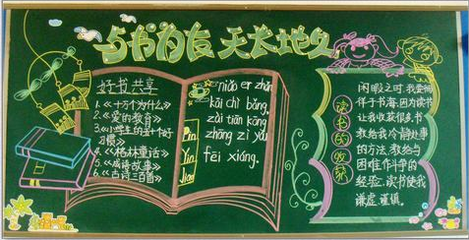 与书为友 天长地久
好书共享
1.《十万个为什么》
2.《爱的教育》
3.《小学生的五十个好
习惯》
4.《格林童话》
5.《成语故事》
6.《古诗三百首》
Pin
Yin
Jing
niǎo er zhǎn
kāi chì bǎng,
zài tiān kōng
zhōng zì yóu
fēi xiáng.
读书的收获
闲暇之时,我坐
伴于书海,因为读书
让我收获很多.书
教给我冷静处事
的方法,教给与
困难作斗争的
经验.读书使我
谦虚、谨慎.